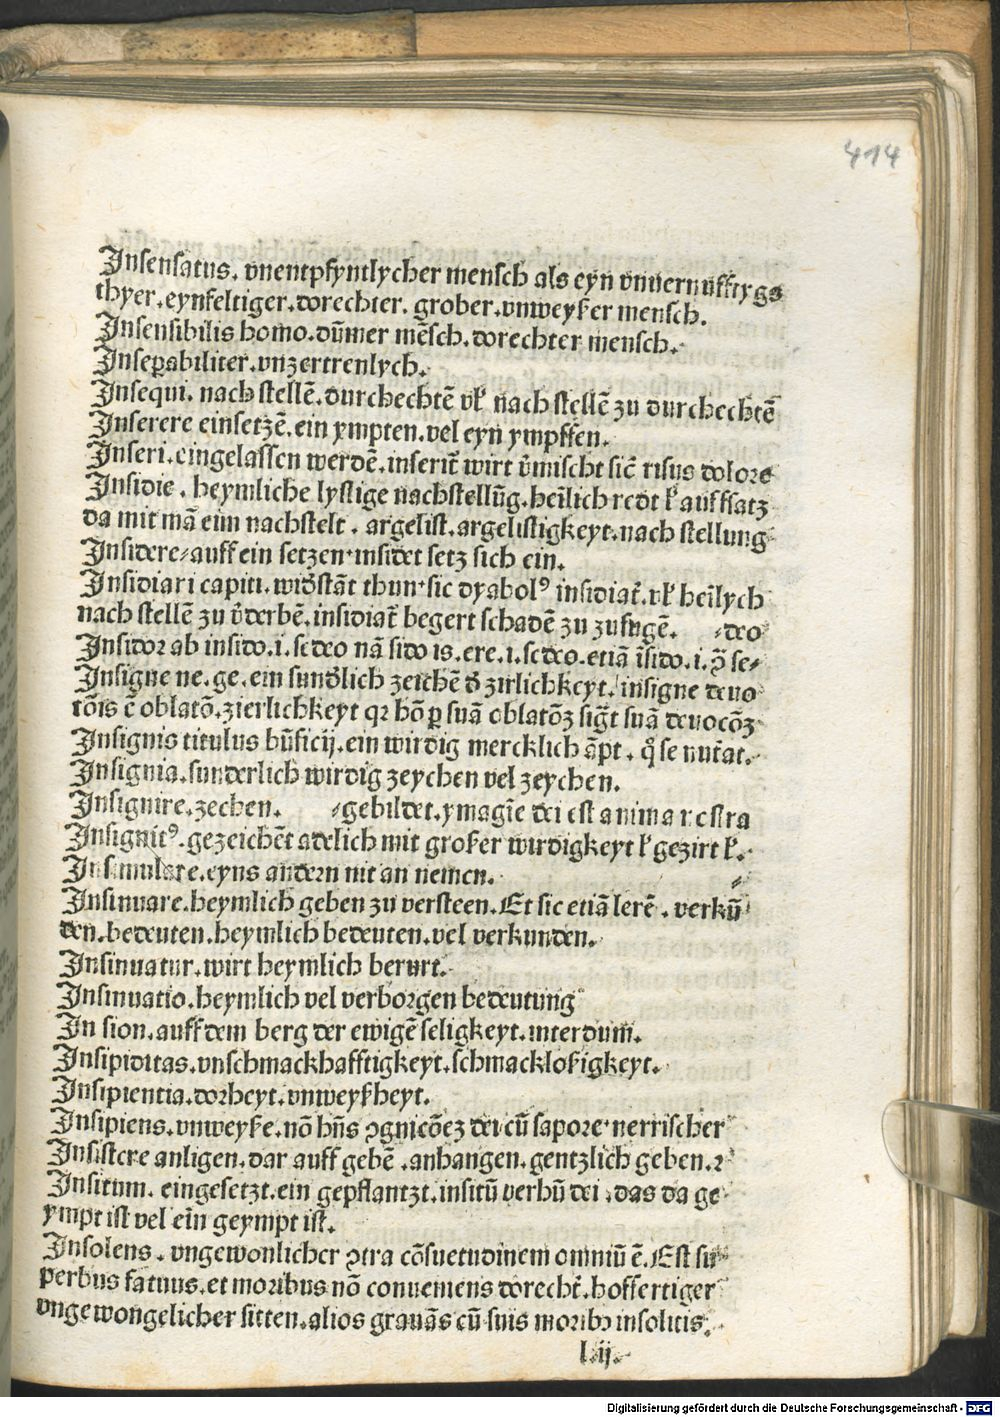 414
Insensatus. vnentpfyntlycher mensch als eyn vnuernufftygs
thyer. eynfeltiger. dorechter. grober. vnweyser mensch.
Insensibilis homo. dūmer mēsch. dorechter mensch.
Inseꝑabiliter. vnzertrenlych.
Insequi. nach stellē. durchechtē vl' nach stellē zu durchechtē
Inserere einsetzē. ein ympten. vel eyn ympffen.
Inseri. eingelassen werdē. inserit̄ wirt v̄mischt sic̄ risus dolore
Insidie. heymliche lystige nachstellūg. heīlich redt l' auffsatz
da mit mā eim nachstelt. argelist. argelistigkeyt. nach stellung
Insidere auff ein setzen insidet setz sich ein.
Insidiari capiti. wid'stāt thun sic dyabolꝰ insidiat̄. vl' heīlych
nach stellē zu v̄derbē. insidiat̄ begert schadē zu zufugē. deo
Insidor ab insido. i. sedeo nā sido is. ere. i. sedeo. etiā īsido. i. ꝓ se
Insigne ne. ge. ein sund'lich zeichē d' zirlichkeyt. insigne deuo
tōis ē oblatō. zierlichkeyt qꝛ hō ꝑ suā oblatōꝫ sigt̄ suā deuocōꝫ
Insignis titulus būficij. ein wirdig mercklich āpt. se nut̄at.
Insignia. sunderlich wirdig zeychen vel zeychen.
Insignire. zechen. gebildet. ymagīe dei est anima nostra
Insignitꝰ. gezeichēt adelich mit groser wirdigkeyt l' gezirt l'.
Insimulare. eyns andern nit an nemen.
Insinuare. heymlich geben zu versteen. Et sic etiā lerē. verkū
den. bedeuten. heymlich bedeuten. vel verkunden.
Insinuatur. wirt heymlich berurt.
Insinuatio. heymlich vel verborgen bedeutung
In sion. auff dem berg der ewigē seligkeyt. interdum.
Insipiditas. vnschmackhafftigkeyt. schmacklosigkeyt.
Insipientia. dorheyt. vnweysheyt.
Insipiens. vnweyse. nō hn̄s ꝯgnicōeꝫ dei cū sapore nerrischer
Insistere anligen. dar auff gebē. anhangen. gentzlich geben. ꝛ
Insitum. eingesetzt. ein gepflantzt. insitū verbū dei. das da ge
ympt ist vel eīn geympt ist.
Insolens. vngewonlicher ꝯtra cōsuetudinem omniū ē. Est su
perbus fatuus. et moribus nō conueniens dorecht̄. hoffertiger
vngewongelicher sitten. alios grauās cū suis moribꝰ insolitis.
l ij.
Digitalisierung gefördert durch die Deutsche Forschungsgemeinschaft - DFG